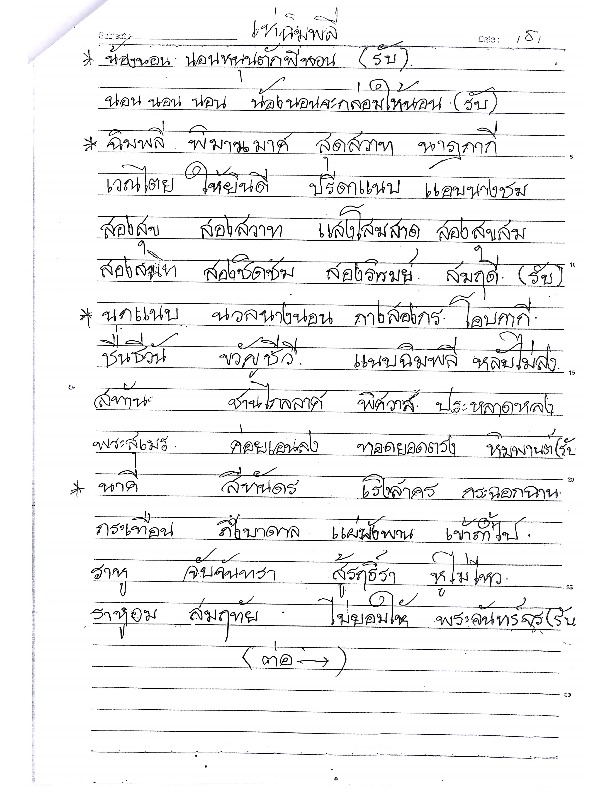 เห่ฉิมพลี
* น้องนอน นอนหนุนตักพี่นอน (รับ)
นอน นอน นอน น้องนอนจะกล่อมให้นอน (รับ)
* ฉิมพลี พิมานมาศ สุดสวาท นาฏกากี
เวณไตย ให้ยินดี ปรีดาแนบ แอบนางชม
สองสุข สองสวาท แสงโสมสาด สองสุขสม
สองสนิท สองชิดชม สองภิรมย์ สมฤดี (รับ)
* นุกแนบ นวลนางนอน กางสองกร โอบกากี
ชื่นชีวัน ขวัญชีวี แนบฉิมพลี หลับไม่ลง
สท้าน ซ่านไกลลาศ พิศวาส ประหลาดหลง
พระสุเมร ค่อยเอนลง ทอดยอดตรง หิมพานต์(รับ
* นาคี สีทันดร เริงสาคร กระฉอกฉาน
กระเทือน ถึงบาดาล แผ่พังพาน เข้าถ้ำไป
ราหู จับจันทรา สู้รฤธิ์รา หูไม่ไหว
ราหูอม สมฤทัย ไม่ยอมให้ พระจันทร์จร(รับ
(ต่อ→)